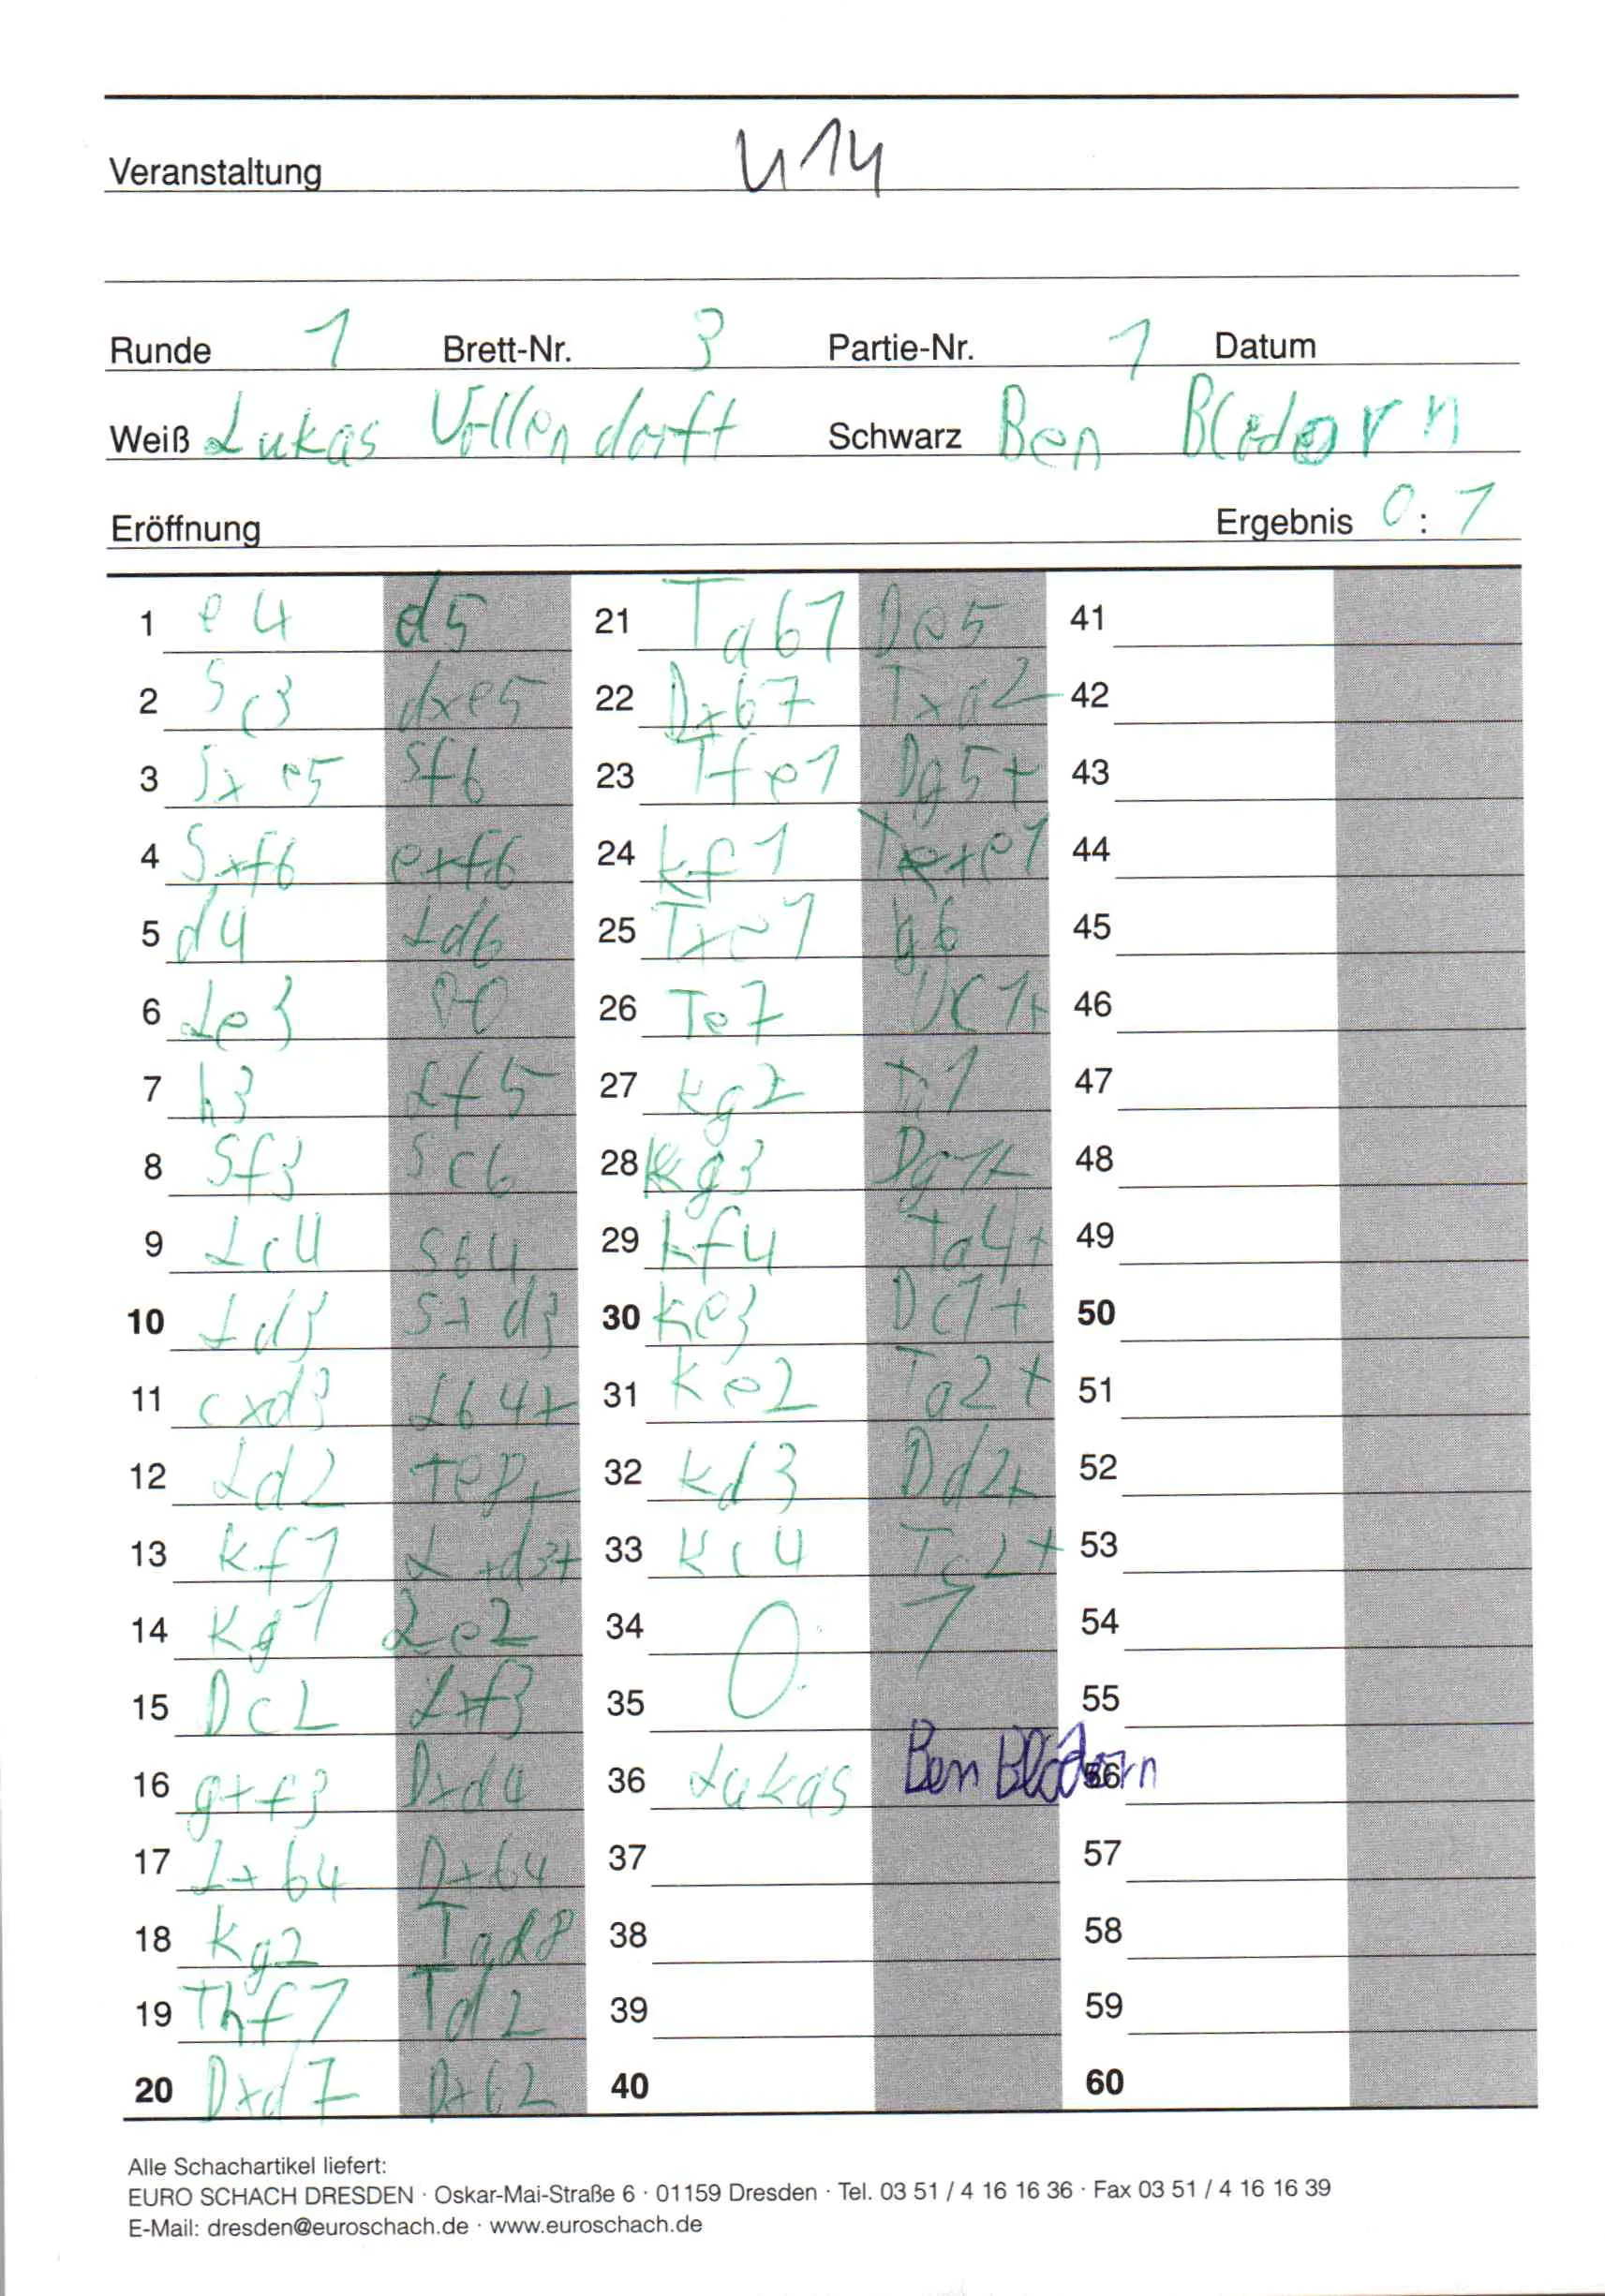 Veranstaltung U14
Runde 1 Brett-Nr. 3 Partie-Nr. 1 Datum
Weiß Lukas Vollendorff Schwarz Ben Blödorn
Eröffnung Ergebnis 0 : 1
1 e4 d5 21 Tab1 De5 41
2 Sc3 dxe5 22 Dxb7 Txa2 42
3 Sxe5 Sf6 23 Tfe1 Dg5+ 43
4 Sxf6 exf6 24 Kf1 Txe1 44
5 d4 Ld6 25 Txe1 g6 45
6 Le3 0-0 26 Te7 Dc1+ 46
7 h3 Lf5 27 Kg2 Ta1 47
8 Sf3 Sc6 28 Kg3 Dg1+ 48
9 Lc4 Sb4 29 Kf4 Ta4+ 49
10 Ld3 Sxd3 30 Ke3 Dc1+ 50
11 cxd3 Lb4+ 31 Ke2 Ta2+ 51
12 Ld2 Te8+ 32 Kd3 Dd2+ 52
13 Kf1 Lxd3+ 33 Kc4 Tc2+ 53
14 Kg1 Le2 34 0 1 54
15 Dc2 Lxf3 35 55
16 gxf3 Dxd4 36 Lukas Ben Blödorn 56
17 Lxb4 Dxb4 37 57
18 Kg2 Tad8 38 58
19 Thf1 Td2 39 59
20 Dxd7 Dxb2 40 60
Alle Schachartikel liefert:
EURO SCHACH DRESDEN · Oskar-Mai-Straße 6 · 01159 Dresden · Tel. 03 51 / 4 16 16 36 · Fax 03 51 / 4 16 16 39
E-Mail: dresden@euroschach.de · www.euroschach.de